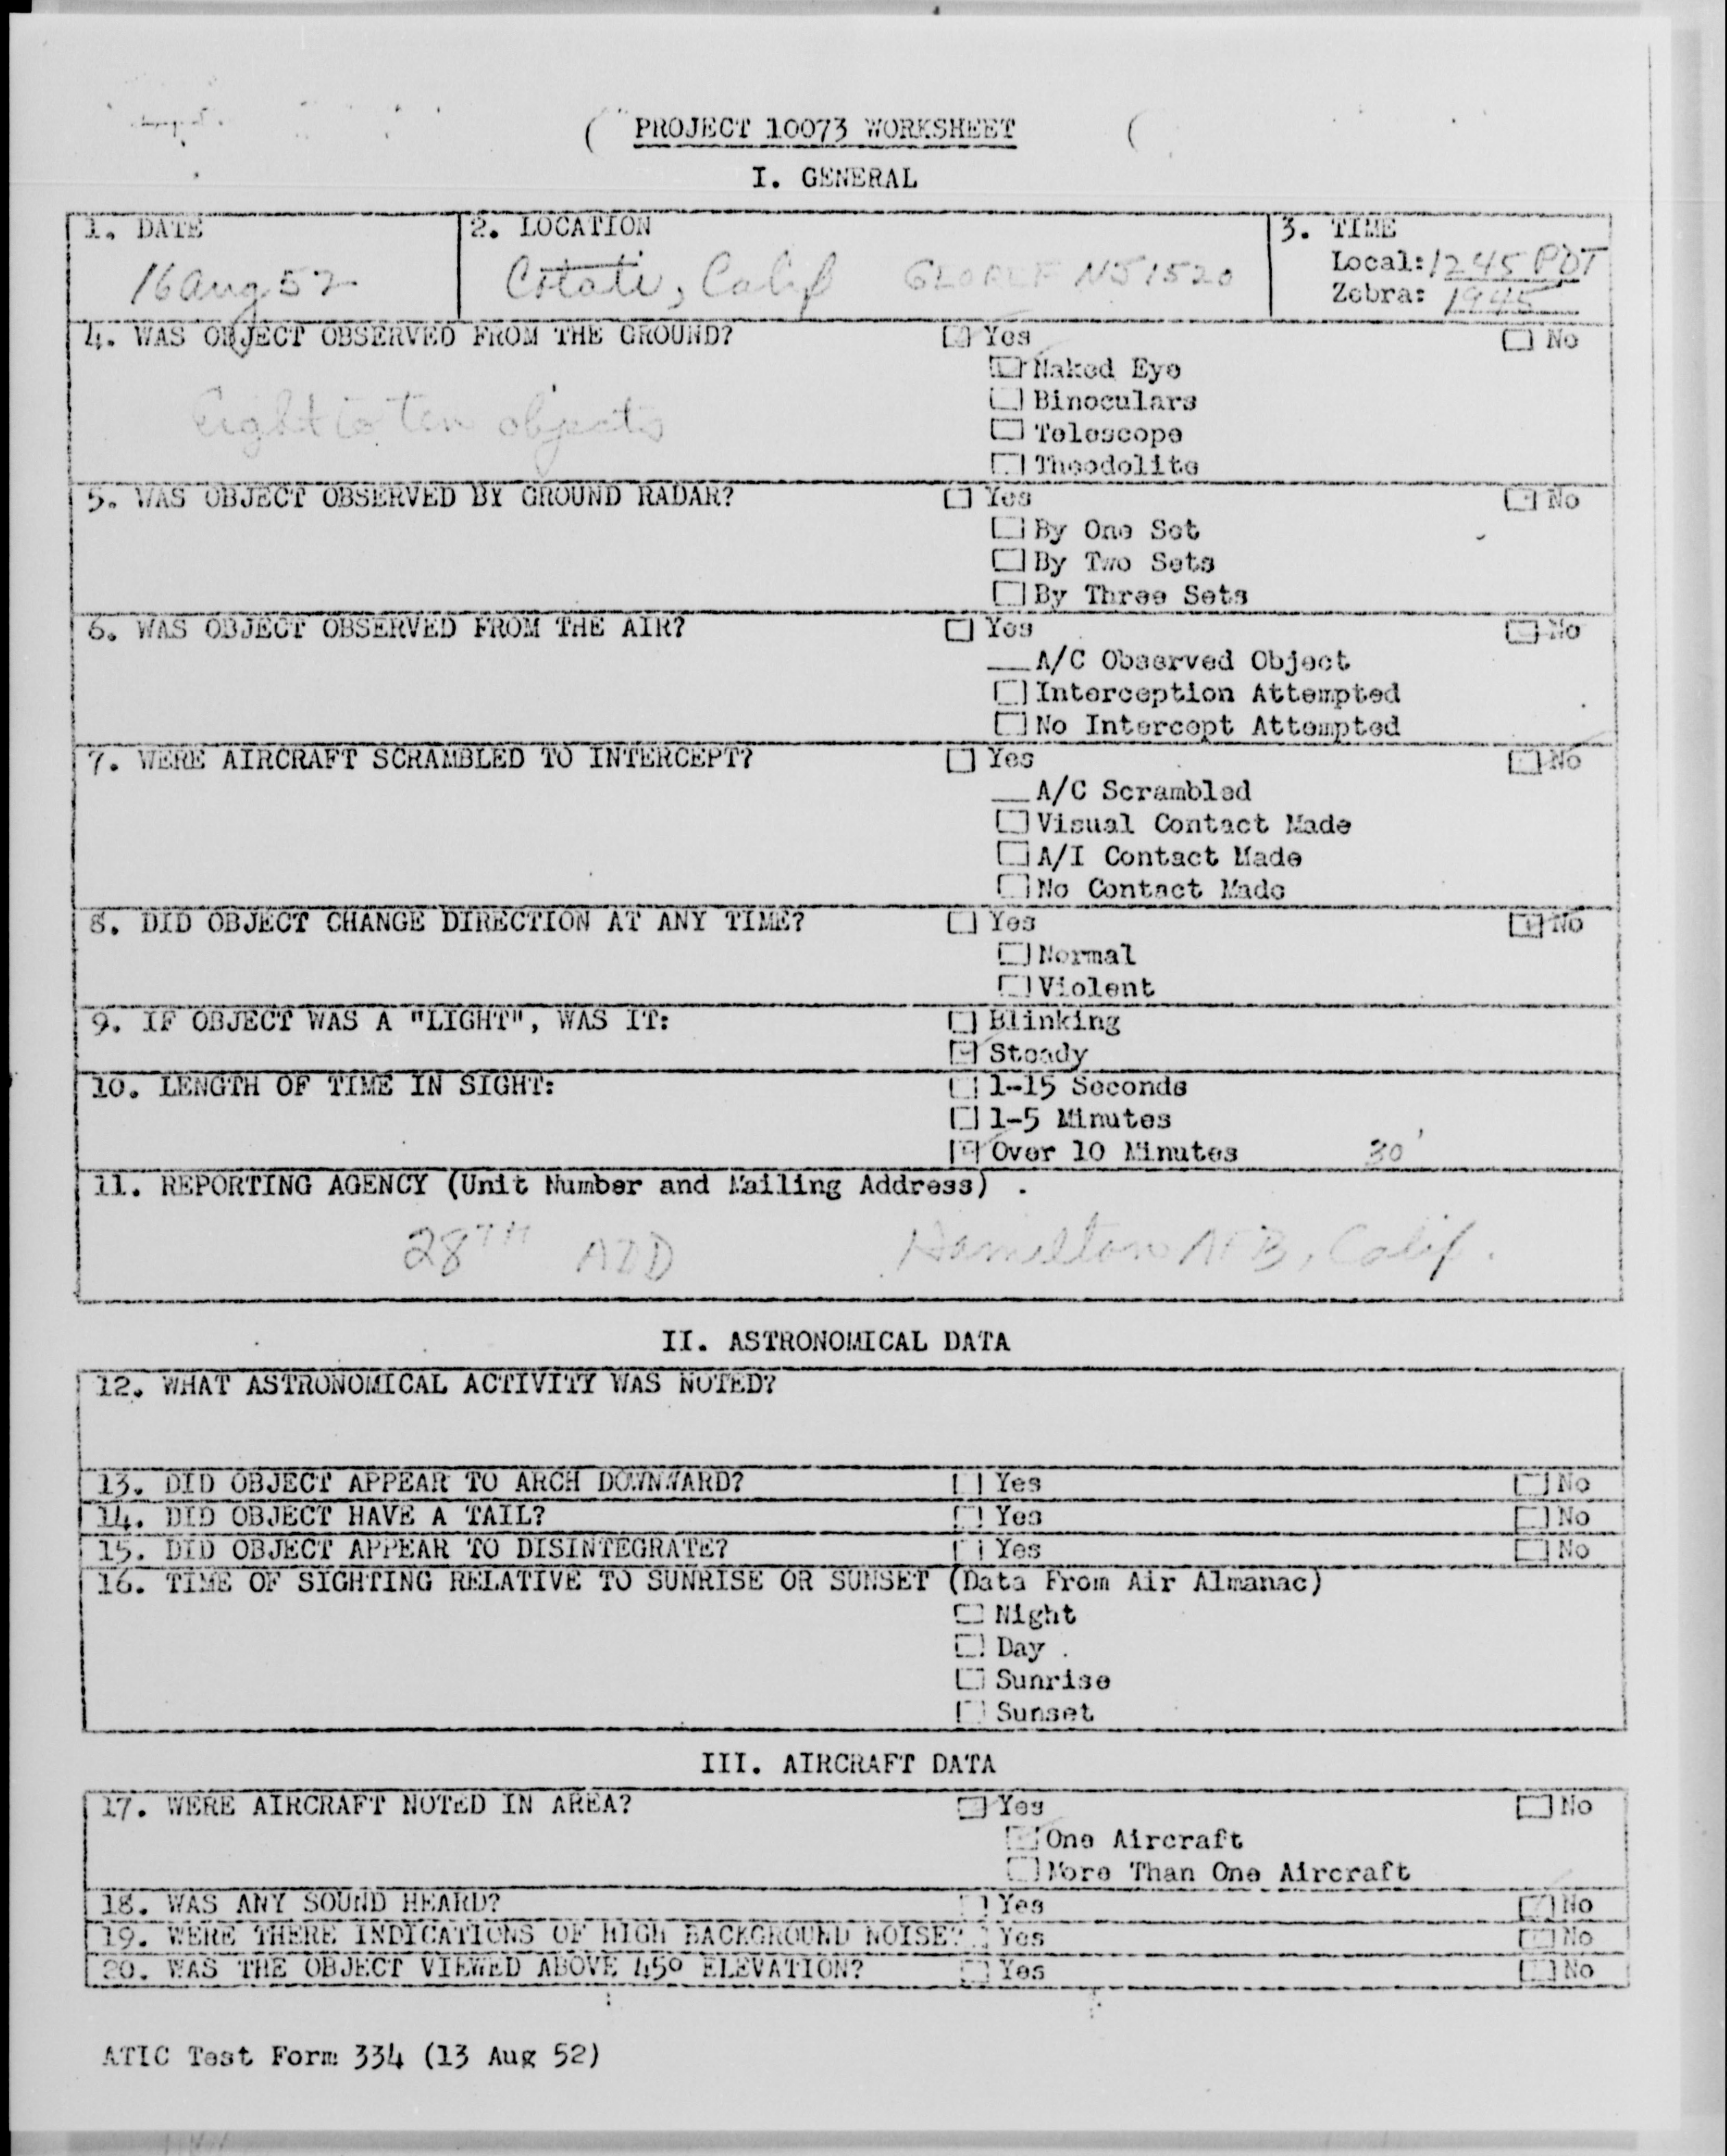 PROJECT 10073 WORKSHEET
I. GENERAL
1. DATE
16 Aug 52
2. LOCATION
Cotati, Calif
3. TIME
Local: 1245 PDT
Zebra: 1945
4. WAS OBJECT OBSERVED FROM THE GROUND? Yes No
Naked Eye
Eight to ten objects
Binoculars
Telescope
Theodolite
5. WAS OBJECT OBSERVED BY GROUND RADAR? Yes No
By One Set
By Two Sets
By Three Sets
6. WAS OBJECT OBSERVED FROM THE AIR? Yes No
A/C Observed Object
Interception Attempted
No Intercept Attempted
7. WERE AIRCRAFT SCRAMBLED TO INTERCEPT? Yes No
A/C Scrambled
Visual Contact Made
A/I Contact Made
No Contact Made
8. DID OBJECT CHANGE DIRECTION AT ANY TIME? Yes No
Normal
Violent
9. IF OBJECT WAS A "LIGHT", WAS IT: Blinking
Steady
10. LENGTH OF TIME IN SIGHT: 1-15 Seconds
1-5 Minutes
Over 10 Minutes 30'
11. REPORTING AGENCY (Unit Number and Mailing Address)
28TH ADD Hamilton AFB, Calif.
II. ASTRONOMICAL DATA
12. WHAT ASTRONOMICAL ACTIVITY WAS NOTED?
13. DID OBJECT APPEAR TO ARCH DOWNWARD? Yes No
14. DID OBJECT HAVE A TAIL? Yes No
15. DID OBJECT APPEAR TO DISINTEGRATE? Yes No
16. TIME OF SIGHTING RELATIVE TO SUNRISE OR SUNSET (Data From Air Almanac)
Night
Day
Sunrise
Sunset
III. AIRCRAFT DATA
17. WERE AIRCRAFT NOTED IN AREA? Yes No
One Aircraft
More Than One Aircraft
18. WAS ANY SOUND HEARD? Yes No
19. WERE THERE INDICATIONS OF HIGH BACKGROUND NOISE? Yes No
20. WAS THE OBJECT VIEWED ABOVE 45° ELEVATION? Yes No
ATIC Test Form 334 (13 Aug 52)